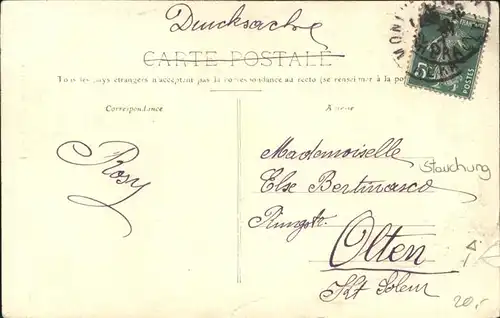 Drucksache
CARTE POSTALE
Tous les pays étrangers n'acceptent pas la correspondance au recto (se renseigner à la
Correspondance
Adresse
Rosy
Mademoiselle
Else
Stauchung
Ringstr.
Olten
Kt Soleur
20.-
5